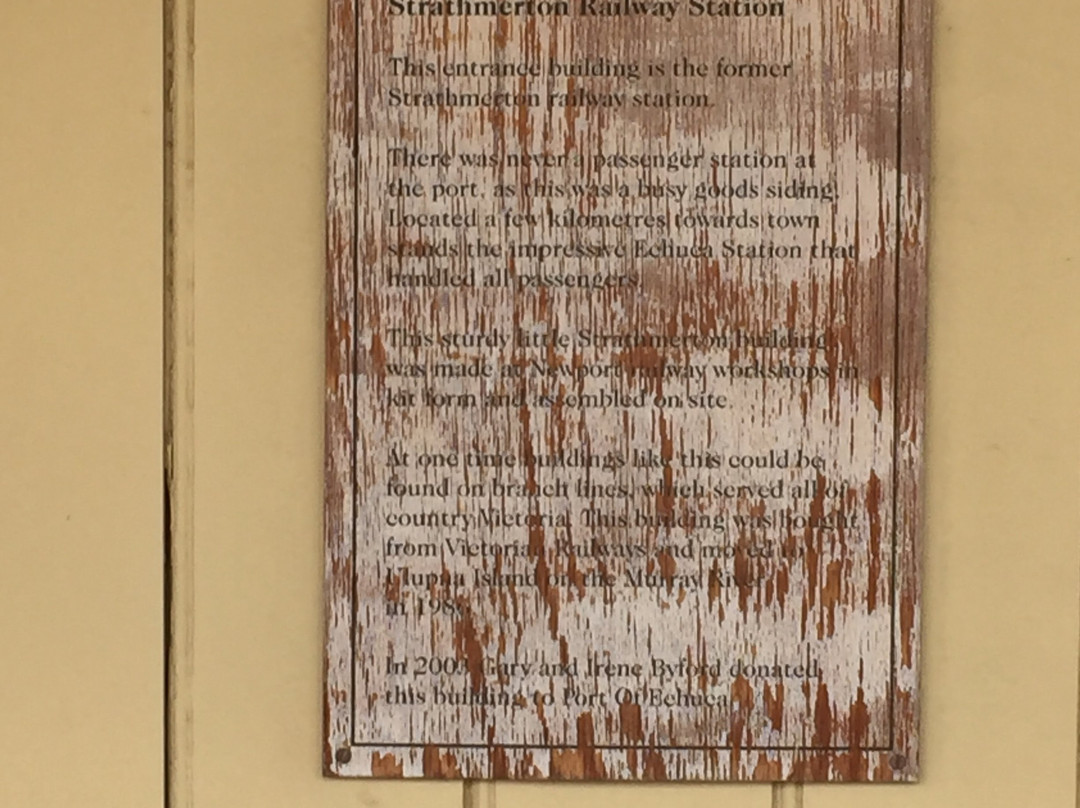 Strathmerton Railway Station
This entrance building is the former
Strathmerton railway station.
There was never a passenger station at
the port, as this was a busy goods siding.
Located a few kilometres towards town
stands the impressive Echuca Station that
handled all passengers.
This sturdy little Strathmerton building
was made at Newport railway workshops in
kit form and assembled on site.
At one time buildings like this could be
found on branch lines, which served all of
country Victoria. This building was bought
from Victorian Railways and moved to
Ulupna Island on the Murray River
in
In Gary and Irene Byford donated
this building to Port Of Echuca.